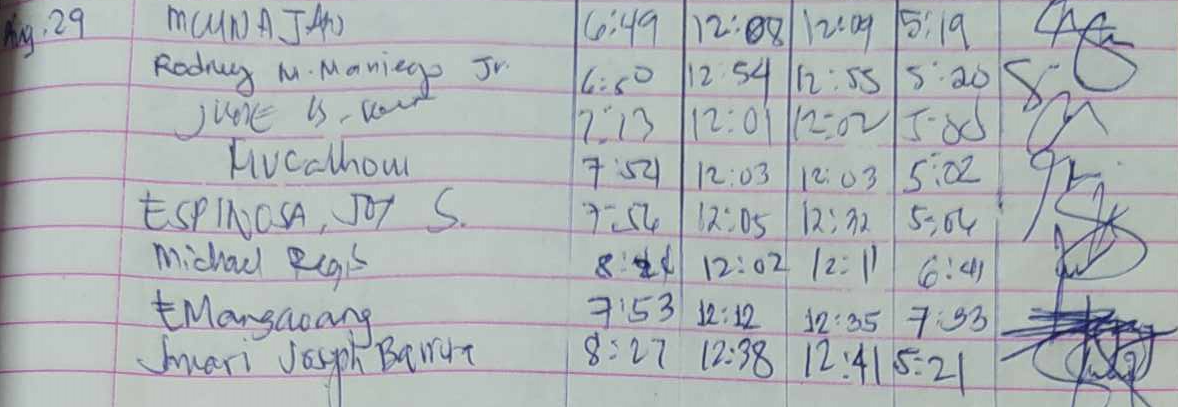 Aug. 29 MCUNAJAN 6:49 12:08 12:09 5:19
Rodney M. Maniego Jr. 6:50 12:54 12:55 5:20
7:13 12:01 12:02
7:54 12:03 12:03 5:02
ESPINOSA, JOY S. 7:56 12:05 12:32 5:06
Michael Regis 12:02 12:11 6:41
EMangaoang 7:53 12:12 12:35 7:33
Joseph 8:27 12:38 12:41 5:21